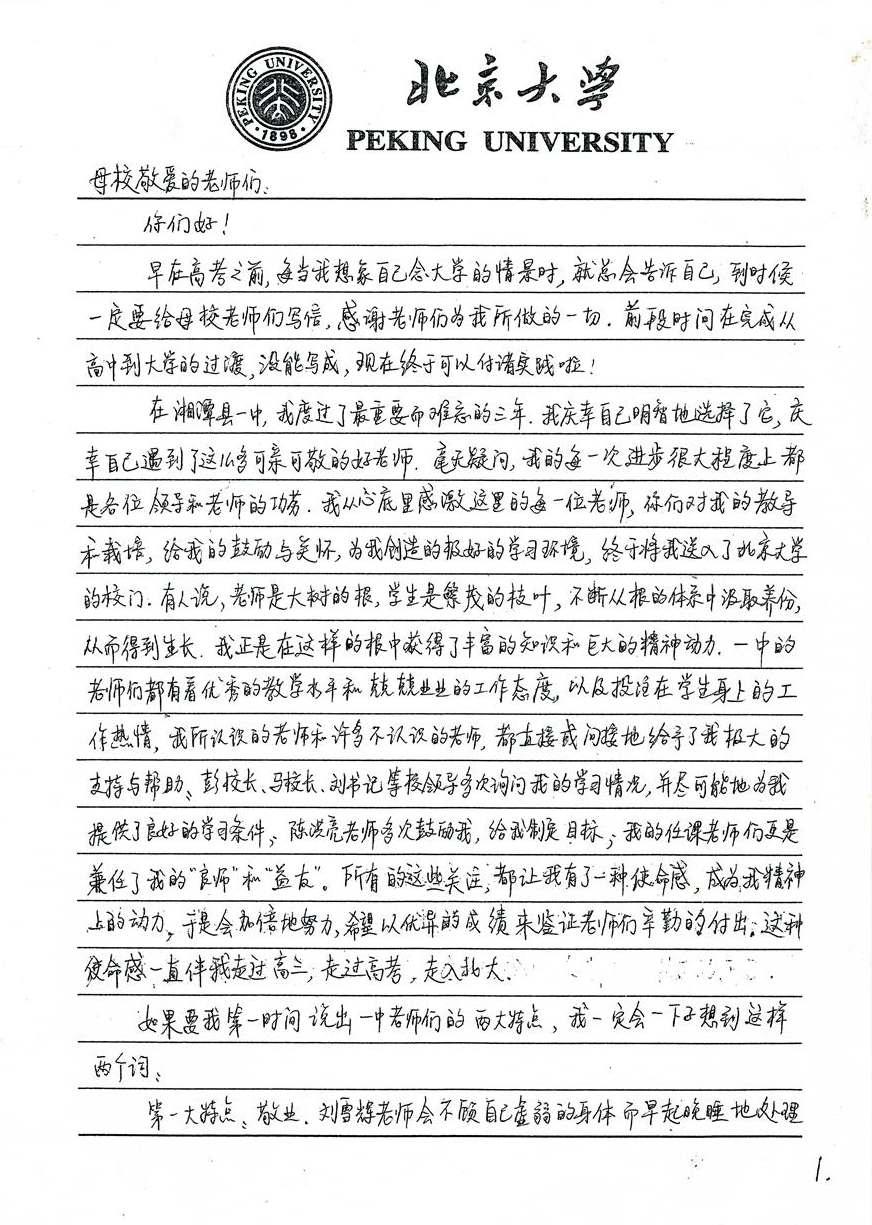 PEKING UNIVERSITY
1898
北京大学
PEKING UNIVERSITY
母校敬爱的老师们:
你们好!
早在高考之前,每当我想象自己念大学的情景时,就总会告诉自己,到时候
一定要给母校老师们写信,感谢老师们为我所做的一切.前段时间在完成从
高中到大学的过渡,没能写成,现在终于可以付诸实践啦!
在湘潭县一中,我度过了最重要而难忘的三年.我庆幸自己明智地选择了它,庆
幸自己遇到了这么多可亲可敬的好老师.毫无疑问,我的每一次进步很大程度上都
是各位领导和老师的功劳.我从心底里感激这里的每一位老师,你们对我的教导
和栽培,给我的鼓励与关怀,为我创造的极好的学习环境,终于将我送入了北京大学
的校门.有人说,老师是大树的根,学生是繁茂的枝叶,不断从根的体系中汲取养份,
从而得到生长.我正是在这样的根中获得了丰富的知识和巨大的精神动力.一中的
老师们都有着优秀的教学水平和兢兢业业的工作态度,以及投注在学生身上的工
作热情,我所认识的老师和许多不认识的老师,都直接或间接地给予了我极大的
支持与帮助、彭校长、马校长、刘书记等校领导多次询问我的学习情况,并尽可能地为我
提供了良好的学习条件;陈洪亮老师多次鼓励我,给我制定目标;我的任课老师们更是
兼任了我的“良师”和“益友”。所有的这些关注,都让我有了一种使命感,成为我精神
上的动力,于是会加倍地努力,希望以优异的成绩来鉴证老师们辛勤的付出.这种
使命感一直伴我走过高三,走过高考,走入北大.
如果要我第一时间说出一中老师们的两大特点,我一定会一下子想到这样
两个词:
第一大特点、敬业.刘雪辉老师会不顾自己虚弱的身体而早起晚睡地处理
1.